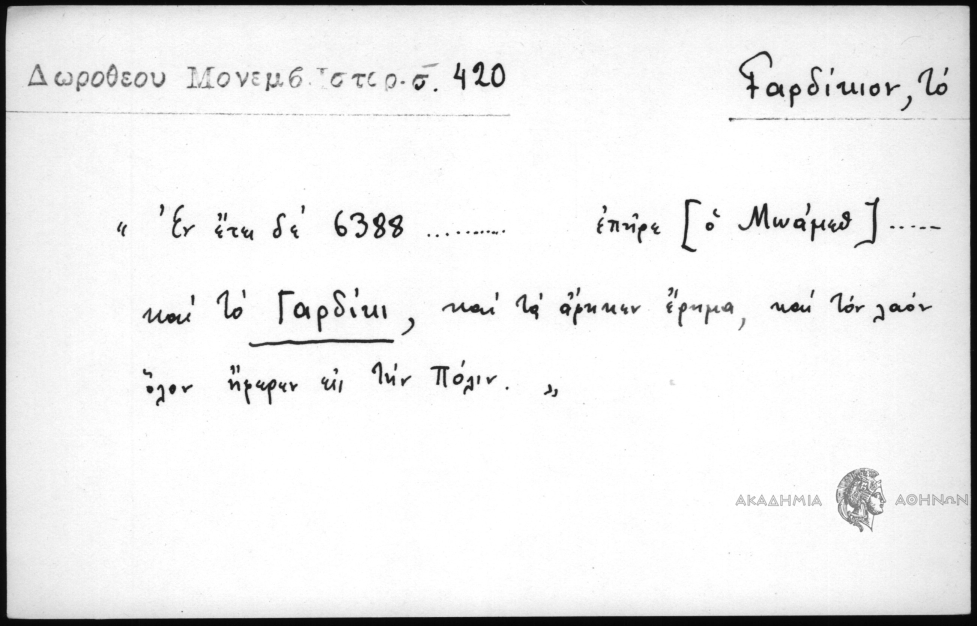 Δωροθεου Μονεμβ. Ιστορ. σ. 420
Γαρδίκιον, τό
" Ἐν ἔτει δέ 6388 .......... ἐπῆρε [ὁ Μωάμεθ] .....
καί τό Γαρδίκι, καί τά ἀφῆκεν ἔρημα, καί τόν λαόν
ὅλον ἤφερεν εἰς τήν Πόλιν. "
ΑΚΑΔΗΜΙΑ ΑΘΗΝΩΝ